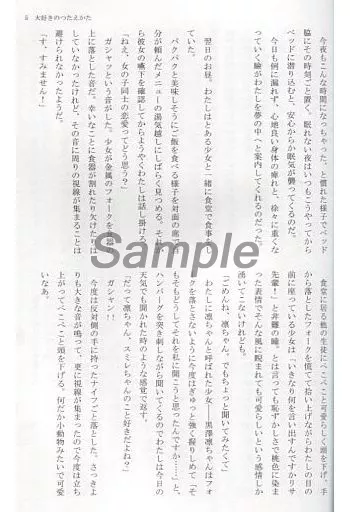 5 大好きのつたえかた
今夜もこんな時間になっちゃった。と慣れた様子でベッド
脇にその時刻ごと置く。眠れない夜はいつもこうやってから
ベッドに潜り込むと、安心からか眠気が襲ってくるのだ。
今日も例に漏れず、心地良い身体の疲れと、徐々に重くな
っていく瞼がわたしを夢の中へと案内してくれるのだった。
翌日のお昼。わたしはとある少女と一緒に食堂で食事を
していた。
パクパクと美味しそうにご飯を食べる様子を対面の席で自
分が頼んだメニューの湯気越しにしばらく見つめる。それか
ら彼女の嚥下を確認してからようやくわたしは話しかける。
「ねえ、女の子同士の恋愛ってどう思う?」
ガシャッという音がした。少女が金属のフォークを食器の
上に落とした音だ。幸いなことに食器が割れたり欠けたりは
していなかったけれど、その音に周りの視線が集まることは
避けられなかったようだ。
「す、すみません!」
食堂に居る他の生徒にぺこぺこと可愛らしく頭を下げ、手
から落としたフォークを慌てて拾い上げながらわたしの目の
前に座っている少女は「いきなり何を言い出すんですかリサ
先輩!」と非難の瞳。とは言っても恥ずかしさで桃色に染ま
った表情でそんな風に睨まれても可愛らしいという感情しか
湧いてこないけれども。
「ごめんね、凛ちゃん。でもちょっと聞いてみたくて」
わたしに凛ちゃんと呼ばれた少女――黒澤凛ちゃんはフォ
ークを落とさないように今度はぎゅっと強く握りしめて「そ
もそもどうしてそれを私に聞こうと思ったんですか……」と、
ハンバーグを突き刺しながら聞いてくるのでわたしは今日の
天気でも聞かれた時のような感覚で返す。
「だって凛ちゃん、スミレちゃんのこと好きだよね?」
ガシャン!!
今度は反対側の手に持ったナイフごと落とした。さっきよ
りも大きな音が鳴って、更に視線が集まったので今度は立ち
上がってぺこぺこと頭を下げる。何だか小動物みたいで可愛
いなあ。
Sample